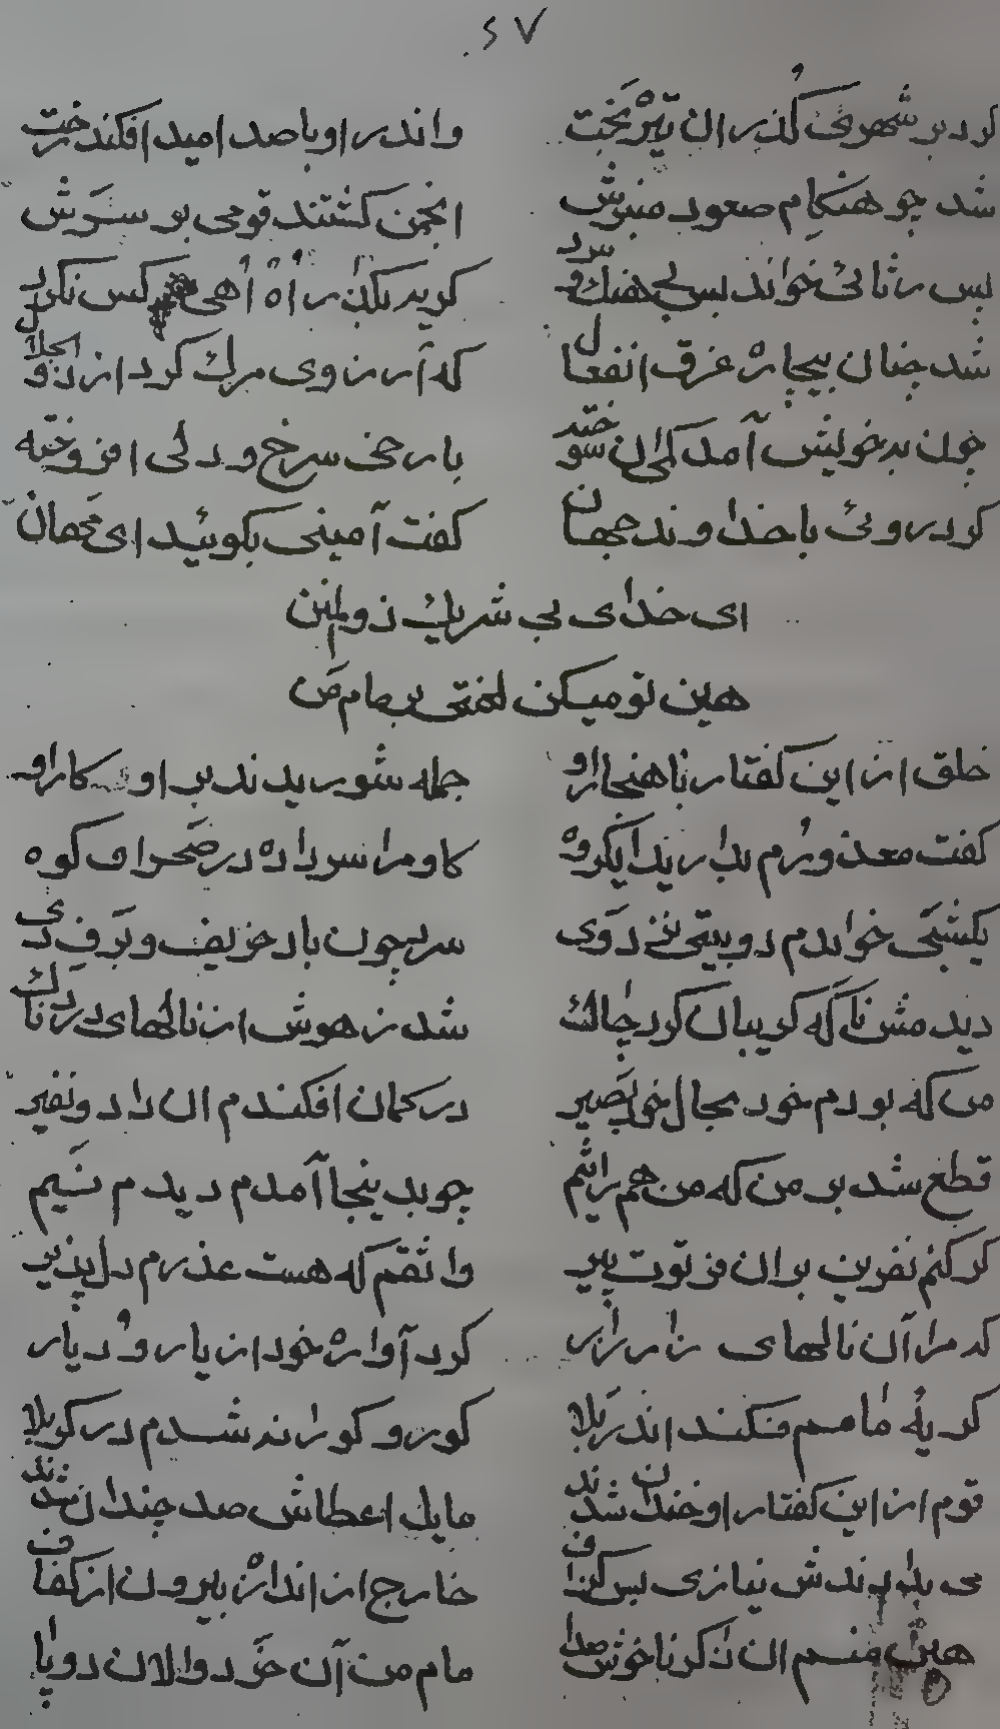 ۴۷
کرد بر شهری گذر ان تیره بخت واندر او با صد امید افکند رخت
شد چو هنگام صعود منبرش انجمن گشتند قومی بر سرش
بس رثائی خواند بس بی هنگ و سرد گریه بگذر اه اهی کس نکرد
شد چنان بیچاره غرق انفعال که آرزوی مرگ کرد از ذو الجلال
چون بخویش آمد سوخته با رخی سرخ و دلی افروخته
کرد روئی با خداوند جهان گفت آمینی بگوئید ای مهان
ای خدای بی شریک ذو لمنن
هین تو میکن لعنتی بر مام من
خلق از این گفتار ناهنجار او جمله شوریدند بر او کار او
گفت معذورم بدارید ایگروه گاو مرا سر داده در صحرا و کوه
یکشبی خواندم دو بیتی نزد وی سر بچون باد خریف و برف دی
دید مش ناگه گریبان کرد چاک شد ز هوش از نالهای دردناک
من که بودم خود بحال خود بصیر در گمان افکندم ان داد و نفیر
قطع شد بر من که من هم راثیم چو بدینجا آمدم دیدم نیم
گر کنم نفرین بران فرتوت پیر واثقم که هست عذرم دلپذیر
که مرا آن نالهای زار زار کرد آواره خود از یار و دیار
گریه مامم فکند اندر بلا کور و کورانه شدم در کربلا
قوم از این گفتار او خندان شدند مایل اعطاش صد چندان شدند
می بدادندش نیازی بس گزاف خارج از اندازه بیرون از کفاف
هین منم ان ذاکر ناخوش صدا مام من آن خر دوالان دو پا